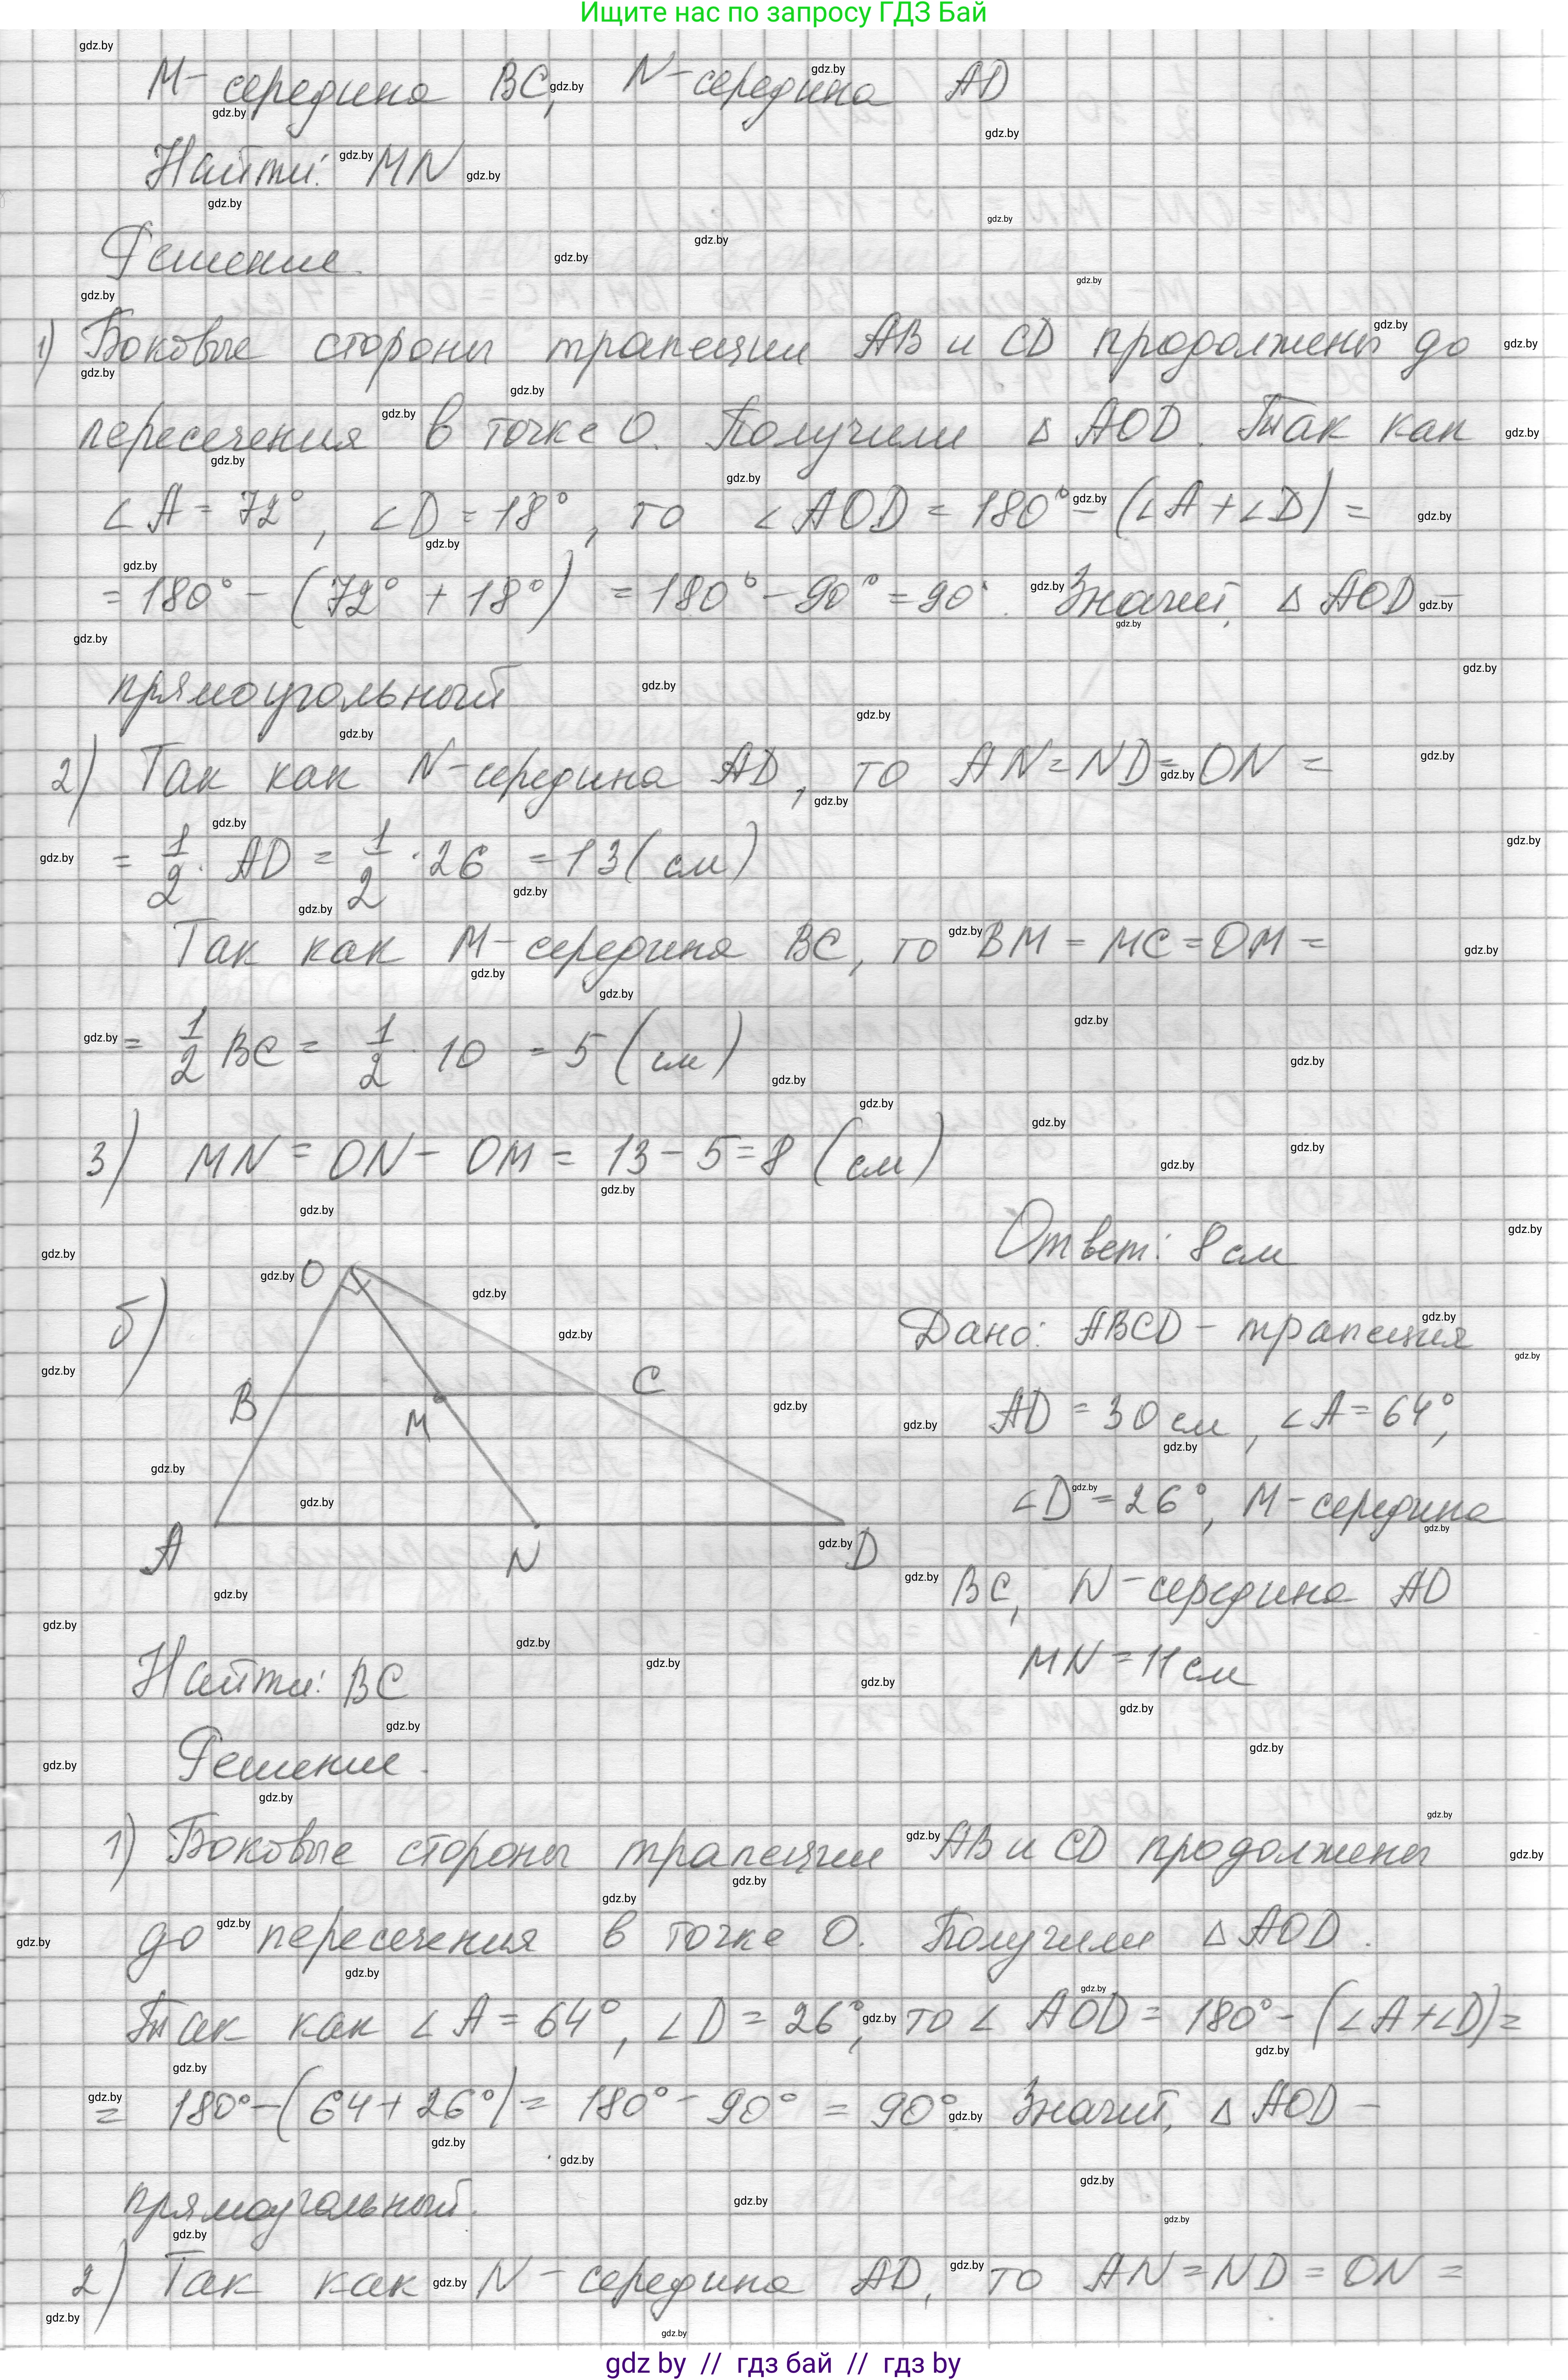 Ищите нас по запросу ГДЗ Бай
M – середина BC, N – середина AD
Найти: MN
Решение.
1) Боковые стороны трапеции AB и CD продолжены до
пересечения в точке O. Получили △ AOD. Так как
∠A = 72°, ∠D = 18°, то ∠AOD = 180° – (∠A + ∠D) =
= 180° – (72° + 18°) = 180° – 90° = 90°. Значит, △ AOD –
прямоугольный
2) Так как N – середина AD, то AN = ND = ON =
= 1/2 · AD = 1/2 · 26 = 13 (см)
Так как M – середина BC, то BM = MC = OM =
= 1/2 BC = 1/2 · 10 = 5 (см)
3) MN = ON – OM = 13 – 5 = 8 (см)
Ответ: 8 см
б)
O
B
C
M
A
N
D
Дано: ABCD – трапеция
AD = 30 см, ∠A = 64°,
∠D = 26°, M – середина
BC, N – середина AD
MN = 11 см
Найти: BC
Решение.
1) Боковые стороны трапеции AB и CD продолжены
до пересечения в точке O. Получили △ AOD.
Так как ∠A = 64°, ∠D = 26°, то ∠AOD = 180° – (∠A + ∠D) =
= 180° – (64 + 26°) = 180° – 90° = 90°. Значит, △ AOD –
прямоугольный.
2) Так как N – середина AD, то AN = ND = ON =
gdz by // гдз бай // гдз by